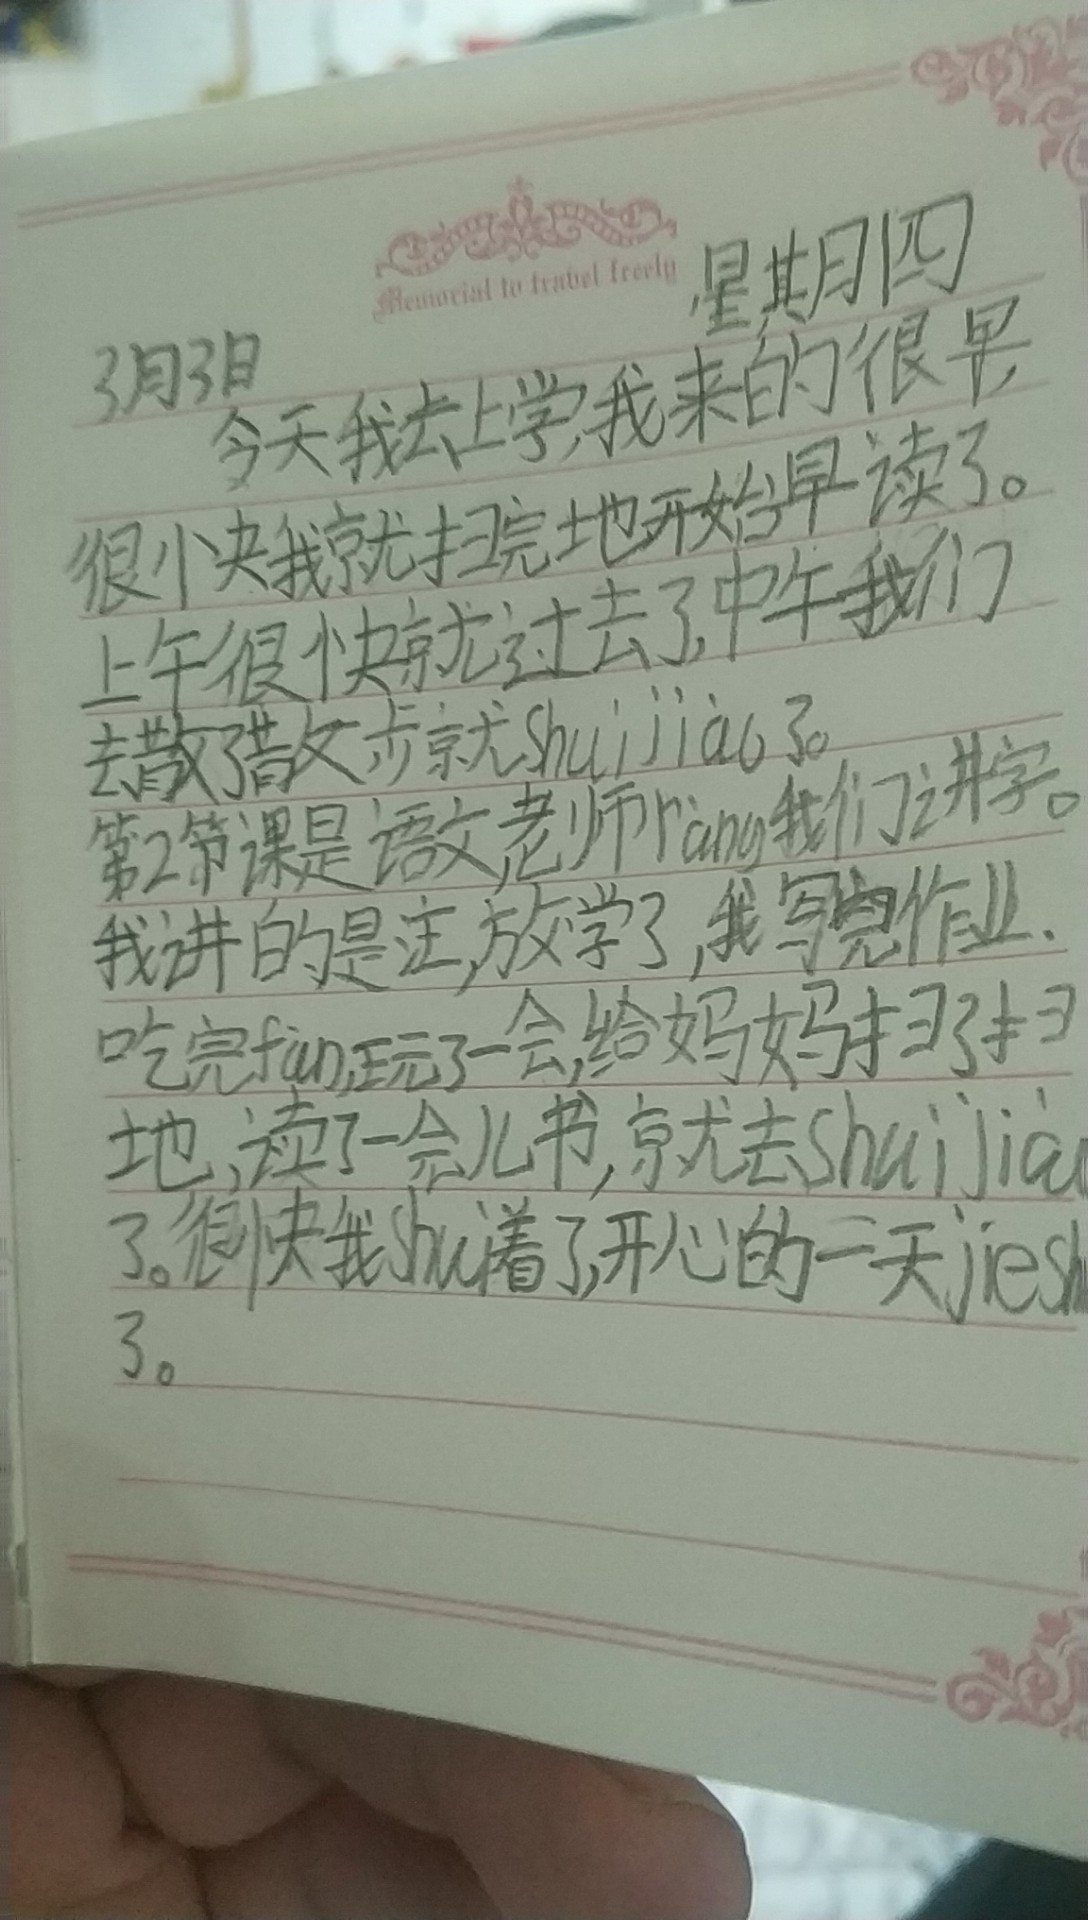 Memorial to travel freely
星期四
3月3日
今天我去上学,我来的很早,
很快我就扫完地开始早读了。
上午很快就过去了,中午我们
去散了散步就shuijiao了。
第2节课是语文,老师rang我们讲字。
我讲的是注,放学了,我写完作业.
吃完fan,玩了一会,给妈妈扫了扫
地,读了一会儿书,就去shuijiao
了。很快我shui着了,开心的一天jiesh
了。